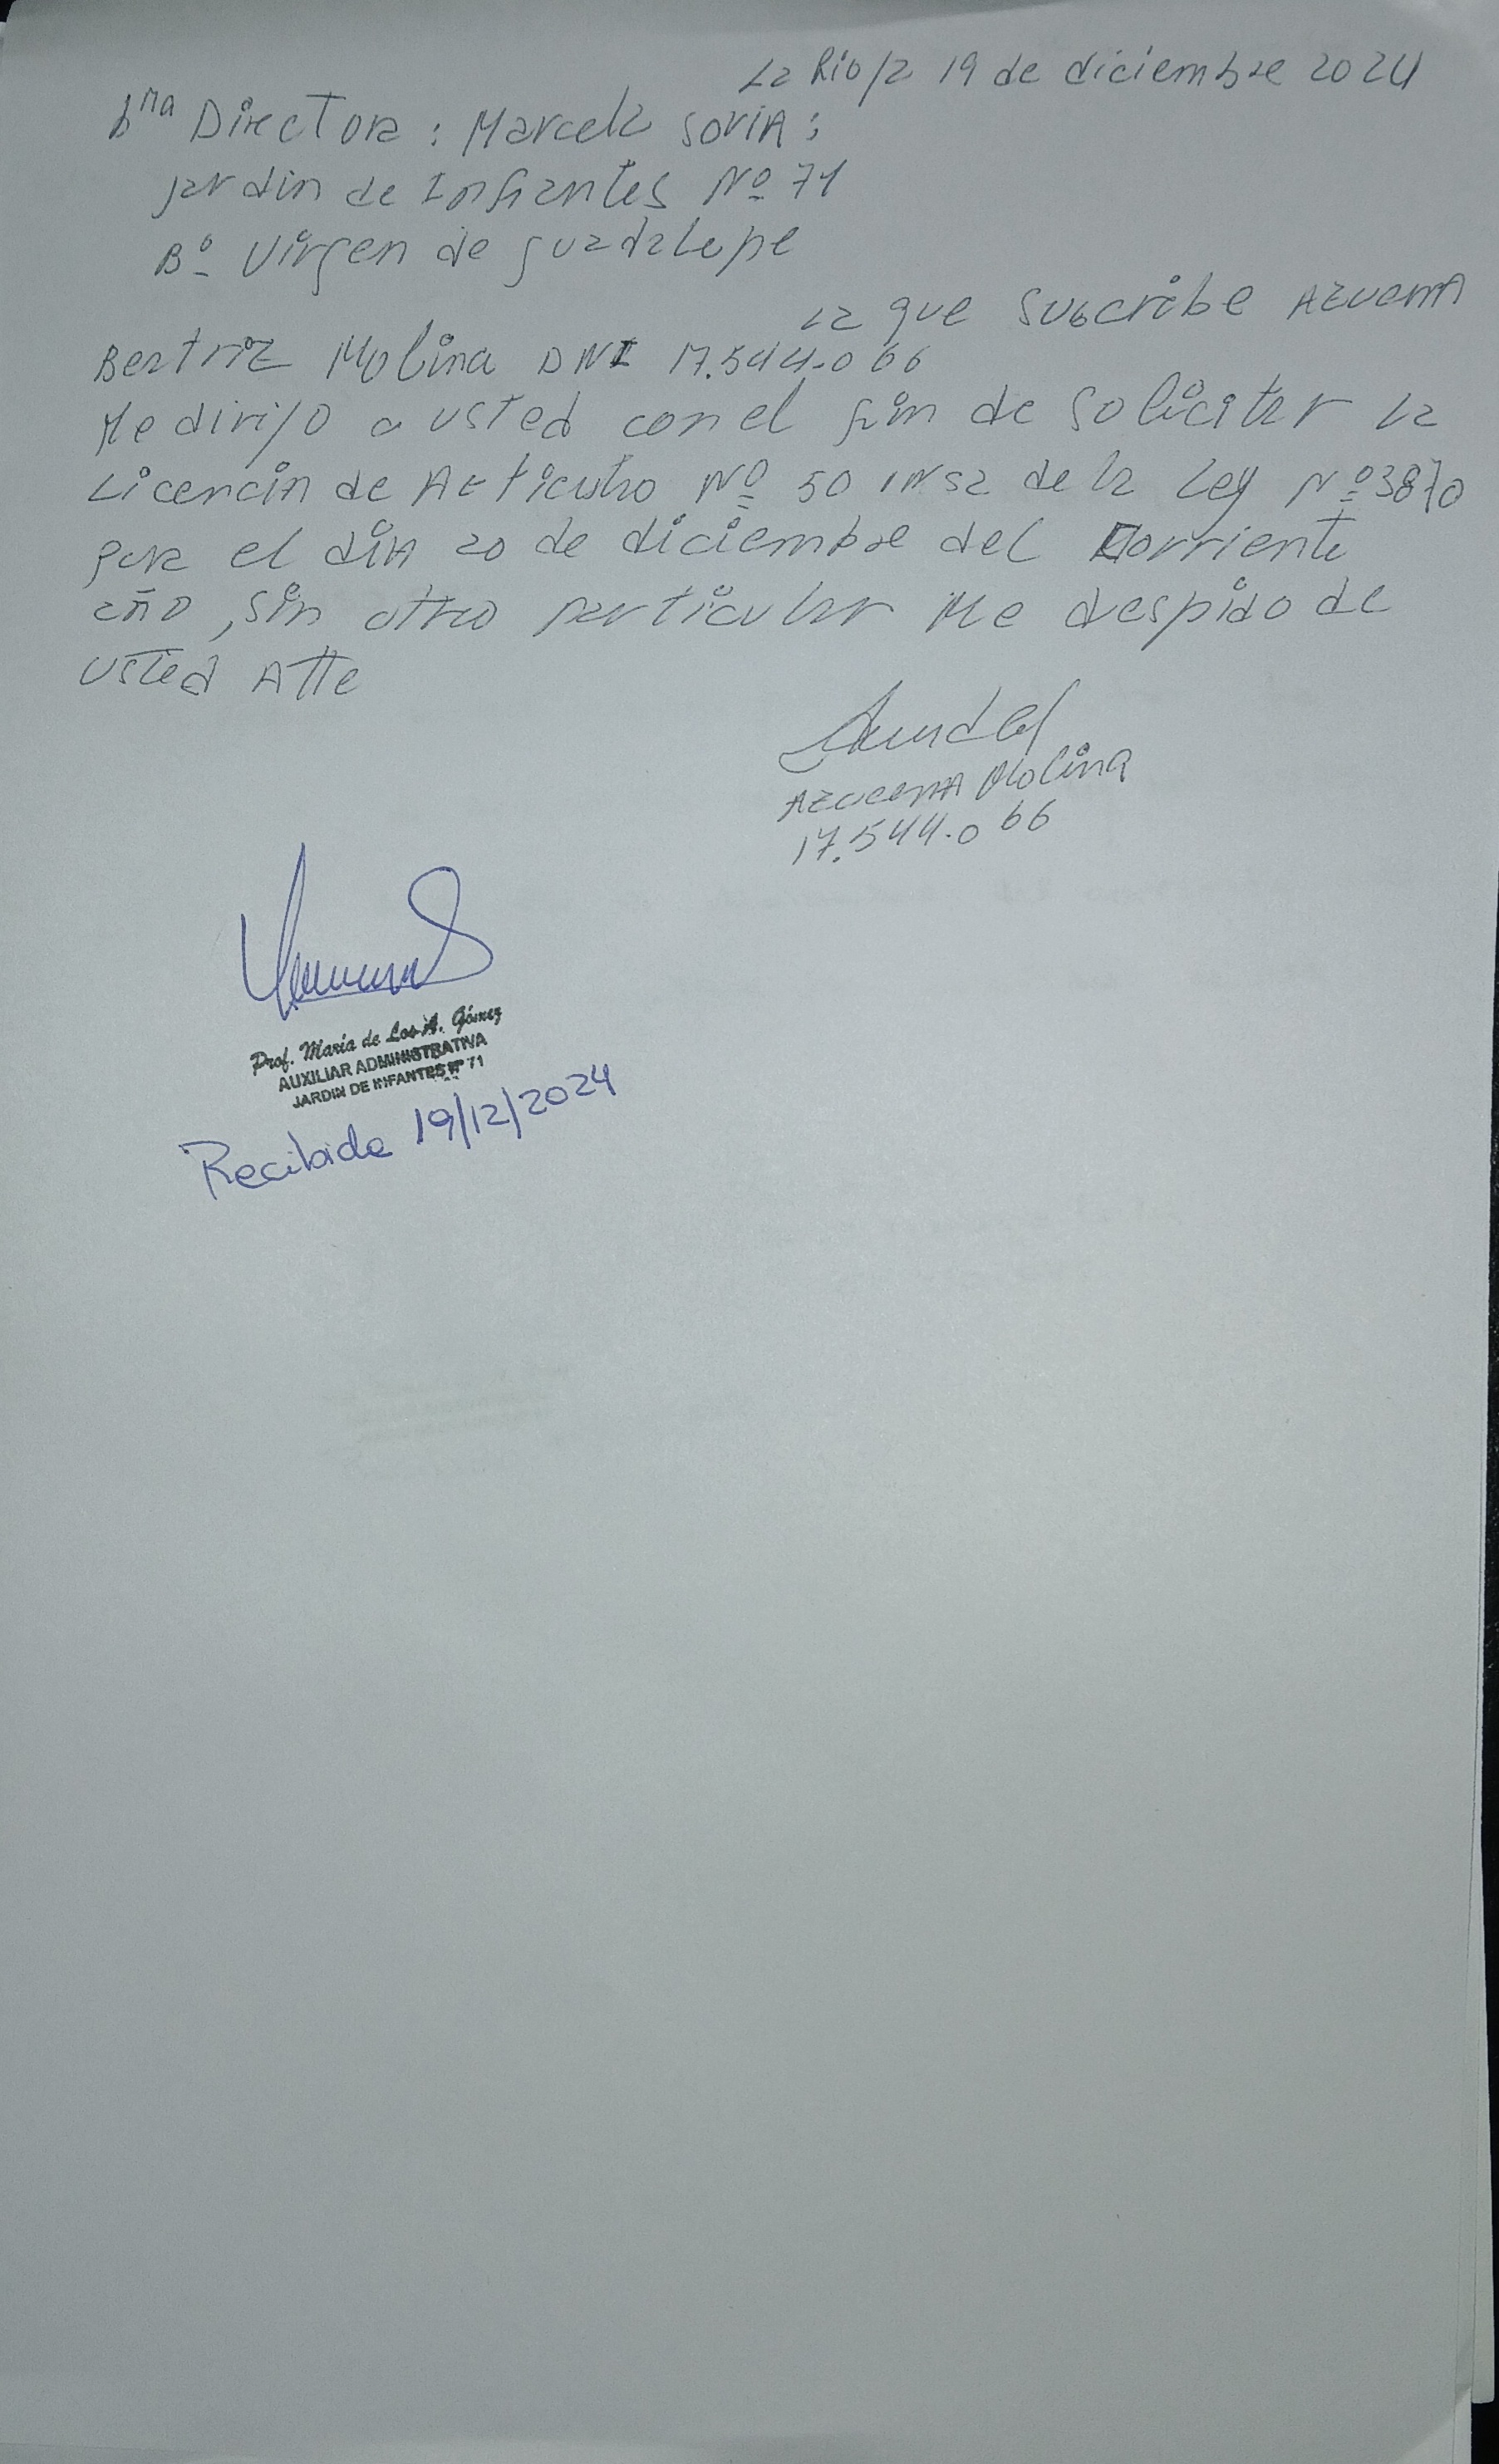 La Rioja 19 de diciembre 2024
Sra Directora: Marcela Soria:
Jardin de Infantes Nº 71
Bº Virgen de Guadalupe
La que suscribe Azucena
Beatriz Molina DNI 17.544.066
Me dirijo a usted con el fin de solicitar la
Licencia de Articulo Nº 50 de la Ley Nº 3870
para el dia 20 de diciembre del Corriente
año, sin otro particular Me despido de
usted Atte
Azucena Molina
17.544.066
Prof. María de Los A. Gómez
AUXILIAR ADMINISTRATIVA
JARDIN DE INFANTES Nº 71
Recibido 19/12/2024